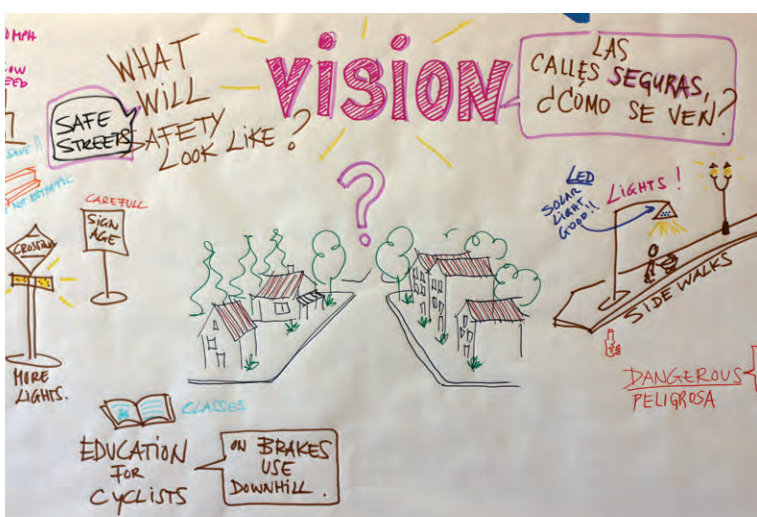 MPH
VISION
WHAT
WILL
SAFETY
LOOK LIKE?
SAFE
STREETS
LAS
CALLES SEGURAS,
¿CÓMO SE VEN?
CAREFULL
SIGN
AGE
CROSSING
MORE
LIGHTS.
?
LED
SOLAR
LIGHT
GOOD!!
LIGHTS!
SIDE WALKS
DANGEROUS
PELIGROSA
CLASSES
EDUCATION
FOR
CYCLISTS
ON BRAKES
USE
DOWNHILL.